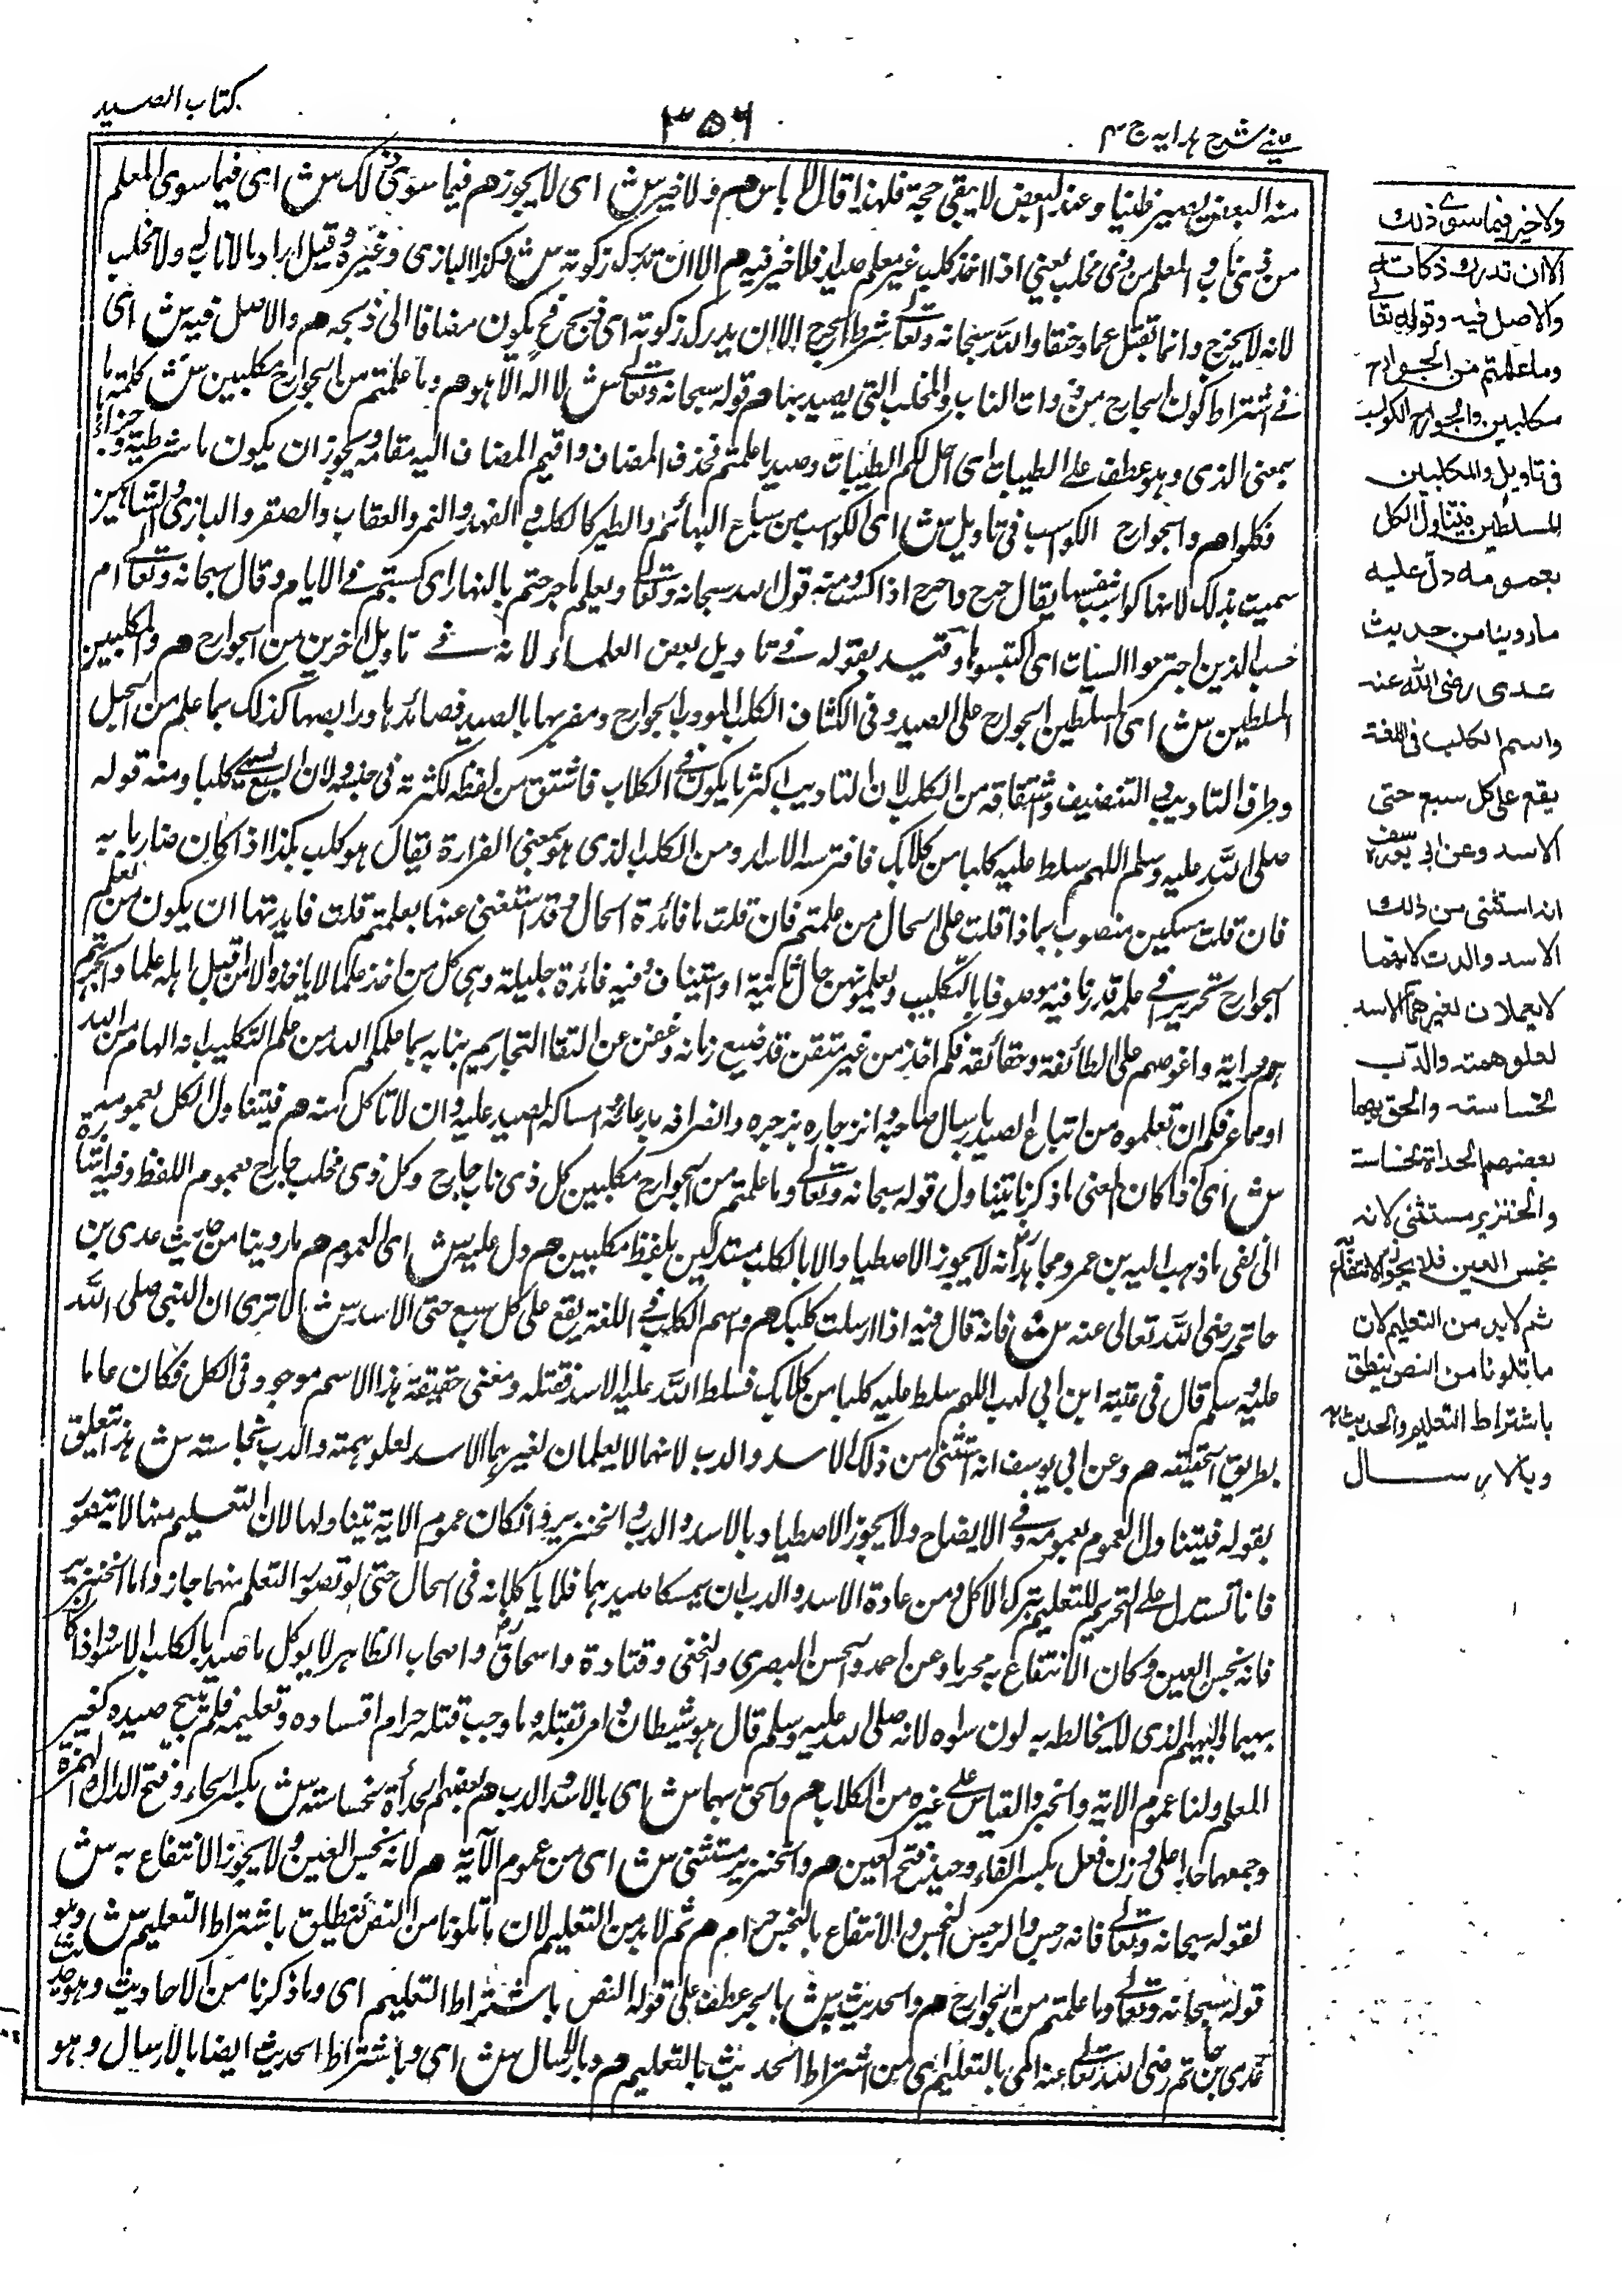 عيني شرح هدايه ج ٤
٣٥٦
كتاب الصيد
منه البعض يصير ظنيا وعند البعض لا يبقى حجة فلهذا قال لا باس هم ولا خير ش اى لا يجوز هم فيما سوى ذلك ش اى فيما سوى المعلم
من ذى ناب و المعلم من ذى مخلب يعني اذا اخذ كلب غير معلم صيدا فلا خير فيه هم الا ان تدرك زكوته ش وكذا البازى وغيره وقيل اراد ما لا ناب له ولا مخلب
لانه لا يجرح وانما تقتل غما وخنقا والله سبحانه وتعالى شرط الجرح الا ان يدرك زكوته اى فذبح فح يكون مضافا الى ذبحه هم والاصل فيه ش اى
في اشتراط كون الجارح من ذوات الناب والمخلب التي يصيد بها هم قوله سبحانه وتعالى ش لا اله الا هو هم وما علمتم من الجوارح مكلبين ش كلمة ما
بمعنى الذى وهو عطف على الطيبات اى احل لكم الطيبات وصيد ما علمتم فحذف المضاف واقيم المضاف اليه مقامه ويجوز ان يكون ما شرطية وجزاءه
فكلوا هم والجوارح الكواسب فى تاويل ش اى الكواسب من سباع البهائم والطير كالكلب و الفهد والنمر والعقاب والصقر والبازى والشاهين
سميت بذلك لانها كواسب بنفسها يقال جرح واجترح اذا اكتسب ومنه قول الله سبحانه وتعالى ويعلم ما جرحتم بالنهار اى كسبتم في الايام وقال سبحانه وتعالى ام
حسب الذين اجترحوا السيات اى اكتسبوها وقيد بقوله في تاويل بعض العلماء لانه في تاويل اخرين من الجوارح هم والمكلبين
المسلطين ش اى المسلطين الجوارح على الصيد و فى الكشاف المكلب المودب الجوارح ومضريها بالصيد لصاحبها ورايضها كذلك بما علم من الحيل
وطرف التاديب والتثقيف واشتقاقه من الكلب لان التاديب اكثر ما يكون في الكلاب فاشتق من لفظه لكثرته فى جنسه او لان السبع يسمى كلبا ومنه قوله
صلى الله عليه وسلم اللهم سلط عليه كلبا من كلابك فافترسه الاسد ومن الكلب الذى هو بمعنى الضراوة يقال هو كلب بكذا اذا كان ضاريا به
فان قلت مكلبين منصوب بماذا قلت على الحال من علمتم فان قلت ما فائدة الحال وقد استغنى عنها بعلمتم قلت فايدتها ان يكون من تعلم
الجوارح نحريرا في علمه مدربا فيه موصوفا بالتكليب وتعلمونهن حال ثانية او استيناف وفيه فائدة جليلة وهى كل من اخذ علما لا ياخذه الا من اقبل اهله علما وانجرهم
دراية واغوصهم على لطائفه وحقائقه فكم اخذ من غير متقن قد ضيع زمانه وعض عند لقاء النحارير بنانه مما علمكم الله من علم التكليب لانه الهام من الله
او مما عرفكم ان تعلموه من اتباع الصيد بارسال صاحبه وانزجاره بزجره وانصرافه بدعائه وامساكه الصيد عليه وان لا تاكل منه هم فيتناول الكل بعمومه
ش اى اذا كان المعنى ما ذكرنا يتناول قوله سبحانه وتعالى وما علمتم من الجوارح مكلبين كل ذى ناب جارح وكل ذى مخلب جارح بعموم اللفظ وفيه اشارة
الى نفى ما ذهب اليه بن عمر ومجاهد انه لا يجوز الاصطياد الا بالكلب مستدلين بلفظ مكلبين هم دل عليه ش اى العموم هم ما روينا من حديث عدى بن
حاتم رضى الله تعالى عنه ش فانه قال فيه اذا ارسلت كلبك هم واسم الكلب في اللغة يقع على كل سبع حتى الاسد ش الا ترى ان النبى صلى الله
عليه وسلم قال فى عتبة ابن ابى لهب اللهم سلط عليه كلبا من كلابك فسلط الله عليه الاسد فقتله ومعنى حقيقة هذا الاسم موجود فى الكل فكان عاما
بطريق الحقيقة هم وعن ابى يوسف انه استثنى من ذلك الاسد والدب لانهما لا يعلمان لغيرهما الاسد لعلو همته والدب لخساسته ش هذا تعليق
بقوله فيتناول العموم بعمومه وفي الايضاح ولا يجوز الاصطياد بالاسد والدب و الخنزير وانكان عموم الاية يتناولها لان التعليم منها لا يتصور
فانا نستدل على التحريم للتعليم بترك الاكل ومن عادة الاسد والدب ان يمسكا صيدهما فلا ياكلانه فى الحال حتى لو تصور التعلم منهما جاز واما الخنزير
فانه نجس العين وكان الانتفاع به محرما وعن احمد والحسن البصرى والنخعى وقتادة واسحاق واصحاب الظاهر لا يوكل ما صيد بالكلب الاسود اذا كان
بهيما والبهيم الذى لا يخالط به لون سواه لانه صلى الله عليه وسلم قال هو شيطان و امر بقتله وما وجب قتله حرام اقتناؤه وتعليمه فلم يبح صيده كغير
المعلم ولنا عموم الاية والخبر والقياس على غيره من الكلاب هم والحق بهما ش اى بالاسد والدب هم بعضهم الحدأة لخساسته ش بكسر الحاء وفتح الدال والهمزة
وجمعها حدا على وزن فعل بكسر الفاء وفتح العين هم والخنزير مستثنى ش اى من عموم الآية هم لانه نجس العين ولا يجوز الانتفاع به ش
لقوله سبحانه وتعالى فانه رجس والرجس النجس والانتفاع بالنجس حرام هم ثم لا بد من التعليم لان ما تلونا من النص ينطق باشتراط التعليم ش وهو
قوله سبحانه وتعالى وما علمتم من الجوارح هم والحديث ش بالجر عطف على قوله النص باشتراط التعليم اى وما ذكرنا من الاحاديث وهو حديث
عدى بن حاتم رضى الله تعالى عنه اى بالتعليم اى من اشتراط الحديث بالتعليم هم وبالارسال ش اى وباشتراط الحديث ايضا بالارسال وهو
ولا خير فيما سوى ذلك
الا ان تدرك ذكاته
والاصل فيه وقوله تعالى
وما علمتم من الجوارح
مكلبين والجوارح الكواسب
فى تاويل والمكلبين
المسلطين فيتناول الكل
بعمومه دل عليه
ما روينا من حديث
عدى رضى الله عنه
واسم الكلب فى اللغة
يقع على كل سبع حتى
الاسد وعن ابى يوسف
انه استثنى من ذلك
الاسد والدب لانهما
لا يعملان لغيرهما الاسد
لعلو همته والدب
لخساسته والحق بهما
بعضهم الحدأة لخساسته
والخنزير مستثنى لانه
نجس العين فلا يجوز الانتفاع به
ثم لا بد من التعليم لان
ما تلونا من النص ينطق
باشتراط التعليم والحديث به
وبالارسال